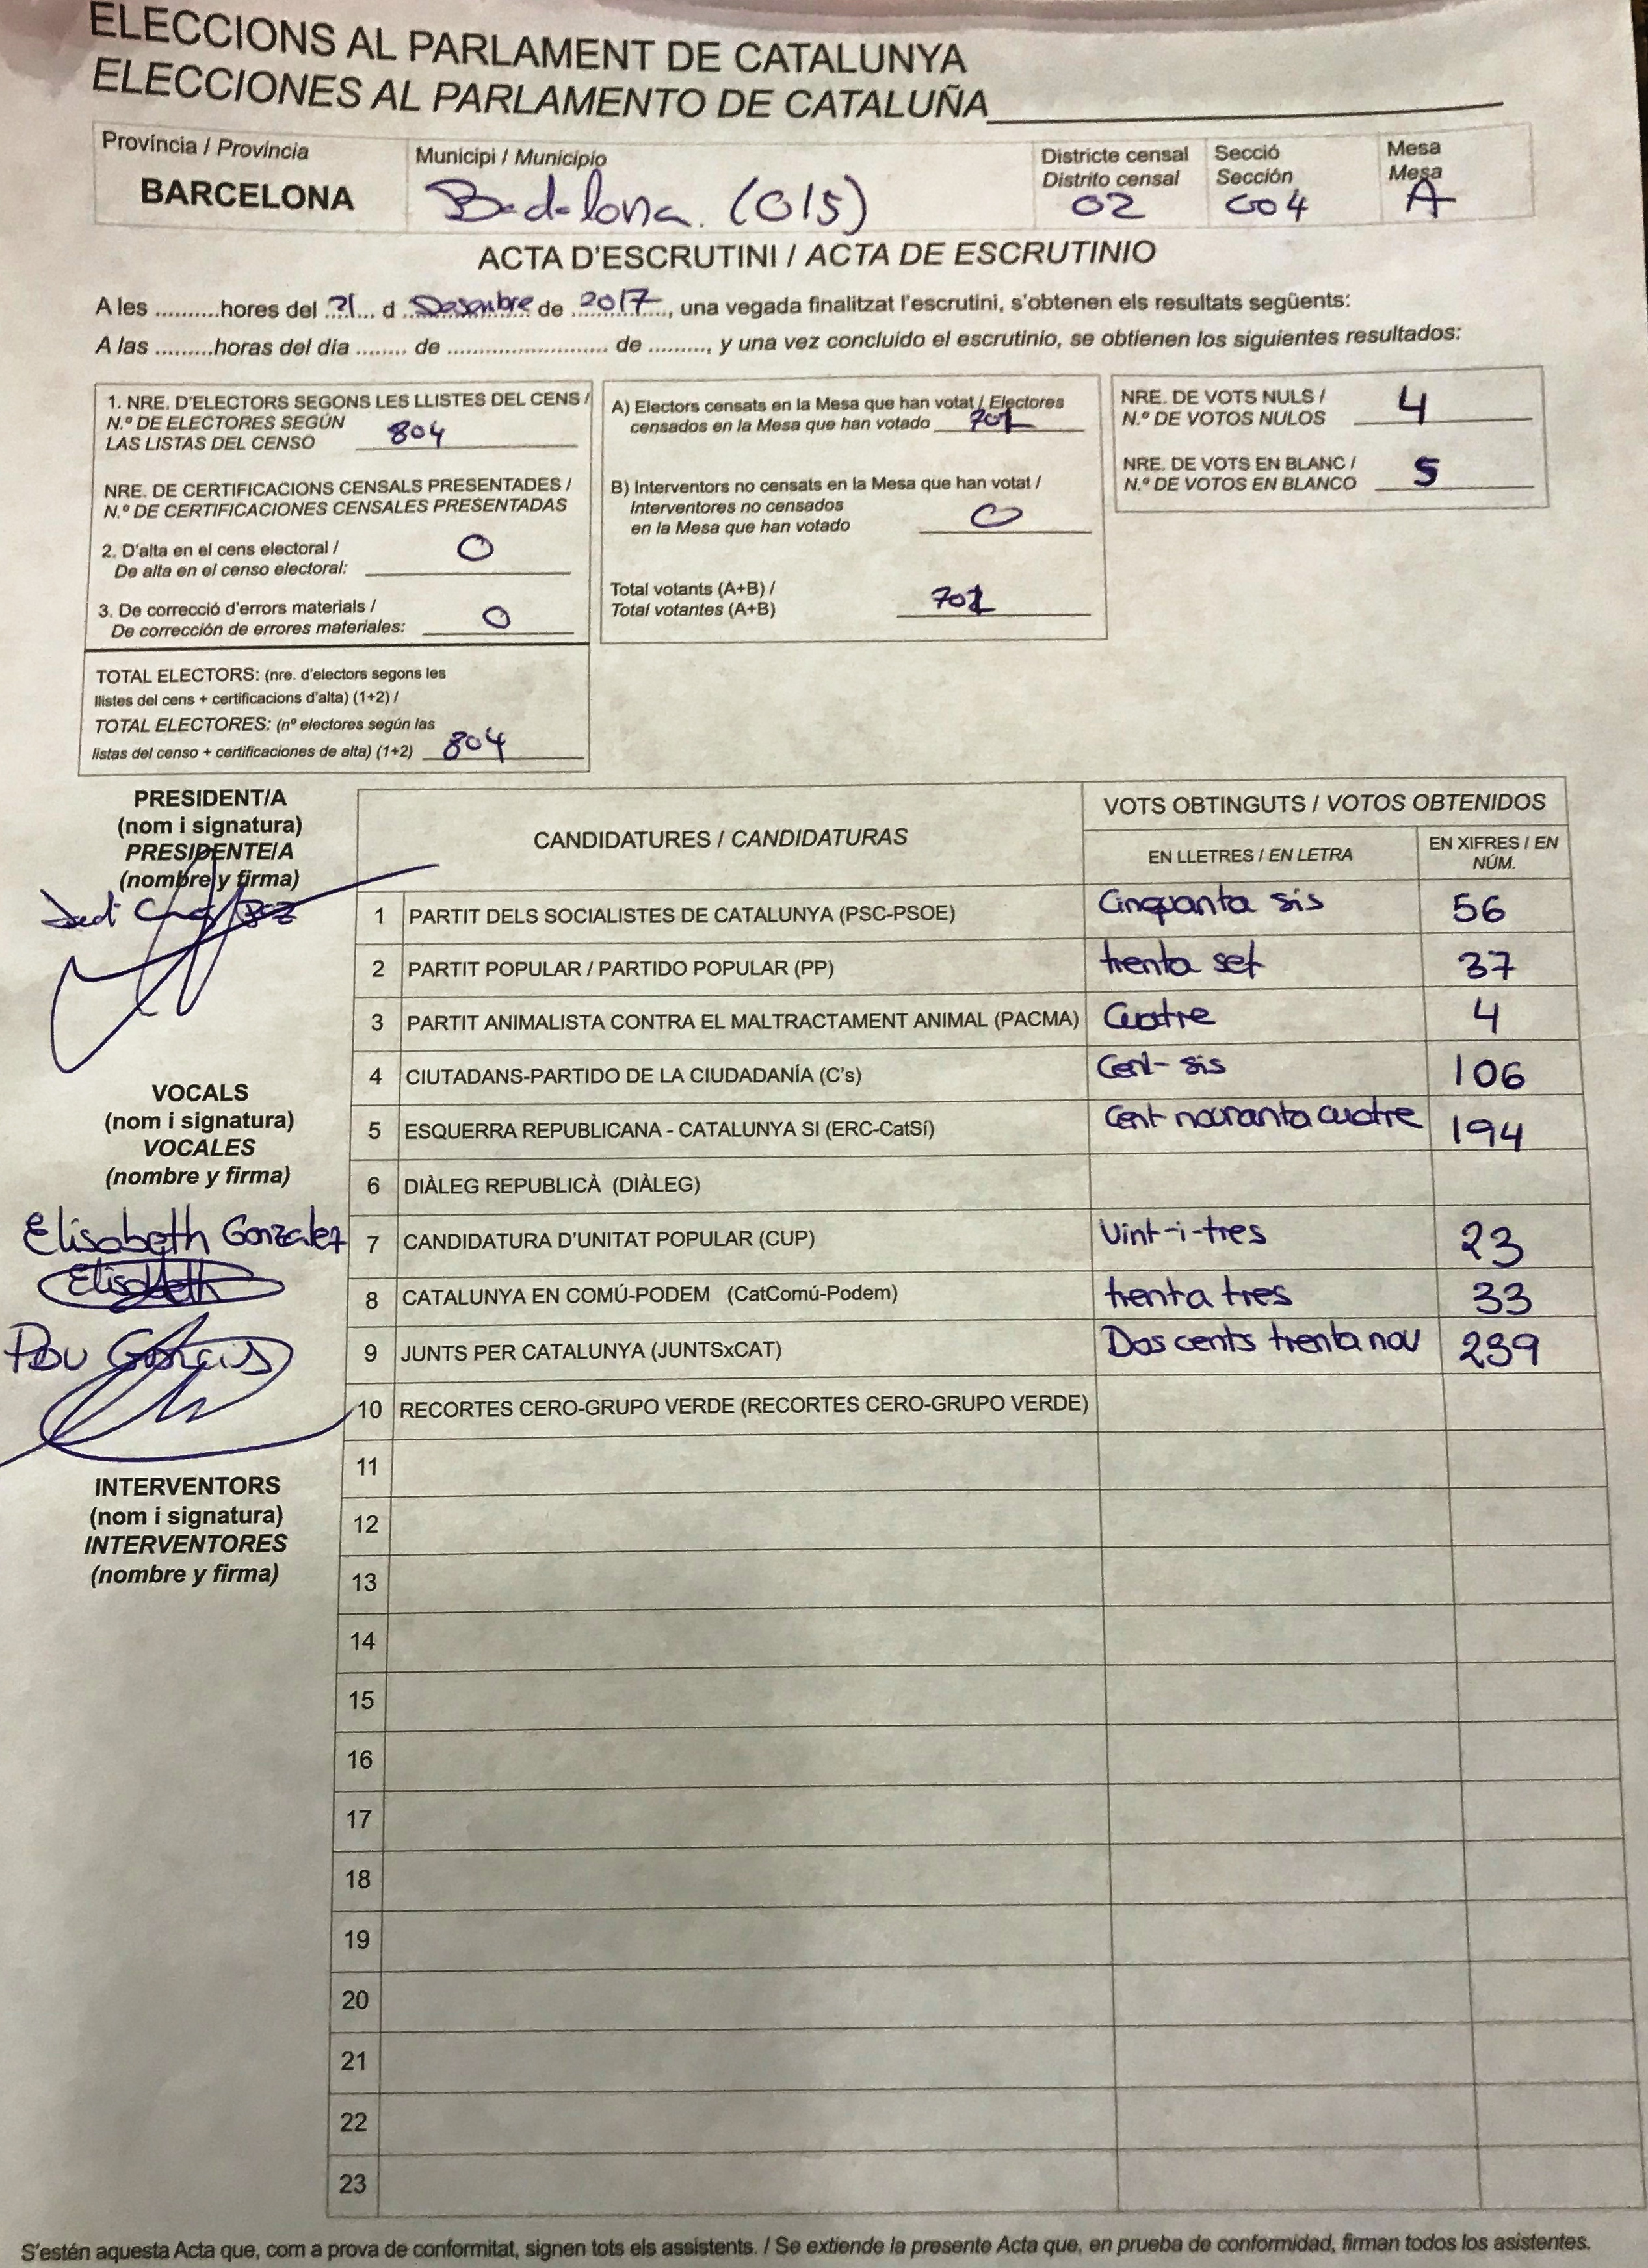 ELECCIONS AL PARLAMENT DE CATALUNYA
ELECCIONES AL PARLAMENTO DE CATALUÑA
Província / Provincia
BARCELONA
Municipi / Municipio
Badalona. (015)
Districte censal
Distrito censal
02
Secció
Sección
004
Mesa
Mesa
A
ACTA D'ESCRUTINI / ACTA DE ESCRUTINIO
A les ..........hores del ..21.. d ..Desembre de ..2017.., una vegada finalitzat l'escrutini, s'obtenen els resultats següents:
A las .........horas del día ........ de ........................ de ........., y una vez concluido el escrutinio, se obtienen los siguientes resultados:
1. NRE. D'ELECTORS SEGONS LES LLISTES DEL CENS /
N.º DE ELECTORES SEGÚN
LAS LISTAS DEL CENSO 804
NRE. DE CERTIFICACIONS CENSALS PRESENTADES /
N.º DE CERTIFICACIONES CENSALES PRESENTADAS
2. D'alta en el cens electoral /
De alta en el censo electoral: 0
3. De correcció d'errors materials /
De corrección de errores materiales: 0
TOTAL ELECTORS: (nre. d'electors segons les
llistes del cens + certificacions d'alta) (1+2) /
TOTAL ELECTORES: (nº electores según las
listas del censo + certificaciones de alta) (1+2) 804
A) Electors censats en la Mesa que han votat / Electores
censados en la Mesa que han votado 701
B) Interventors no censats en la Mesa que han votat /
Interventores no censados
en la Mesa que han votado 0
Total votants (A+B) /
Total votantes (A+B) 701
NRE. DE VOTS NULS /
N.º DE VOTOS NULOS 4
NRE. DE VOTS EN BLANC /
N.º DE VOTOS EN BLANCO 5
PRESIDENT/A
(nom i signatura)
PRESIDENTE/A
(nombre y firma)
VOCALS
(nom i signatura)
VOCALES
(nombre y firma)
Elisabeth Gonzalez
Elisabeth
Pau
INTERVENTORS
(nom i signatura)
INTERVENTORES
(nombre y firma)
CANDIDATURES / CANDIDATURAS
VOTS OBTINGUTS / VOTOS OBTENIDOS
EN LLETRES / EN LETRA
EN XIFRES / EN NÚM.
1 PARTIT DELS SOCIALISTES DE CATALUNYA (PSC-PSOE) Cinquanta sis 56
2 PARTIT POPULAR / PARTIDO POPULAR (PP) trenta set 37
3 PARTIT ANIMALISTA CONTRA EL MALTRACTAMENT ANIMAL (PACMA) Cuatre 4
4 CIUTADANS-PARTIDO DE LA CIUDADANÍA (C's) Cent-sis 106
5 ESQUERRA REPUBLICANA - CATALUNYA SI (ERC-CatSí) Cent noranta cuatre 194
6 DIÀLEG REPUBLICÀ (DIÀLEG)
7 CANDIDATURA D'UNITAT POPULAR (CUP) Vint-i-tres 23
8 CATALUNYA EN COMÚ-PODEM (CatComú-Podem) trenta tres 33
9 JUNTS PER CATALUNYA (JUNTSxCAT) Dos cents trenta nou 239
10 RECORTES CERO-GRUPO VERDE (RECORTES CERO-GRUPO VERDE)
11
12
13
14
15
16
17
18
19
20
21
22
23
S'estén aquesta Acta que, com a prova de conformitat, signen tots els assistents. / Se extiende la presente Acta que, en prueba de conformidad, firman todos los asistentes.